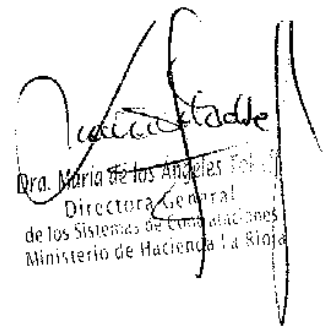 Dra. María de los Angeles
Directora General
de los Sistemas de Contrataciones
Ministerio de Hacienda La Rioja